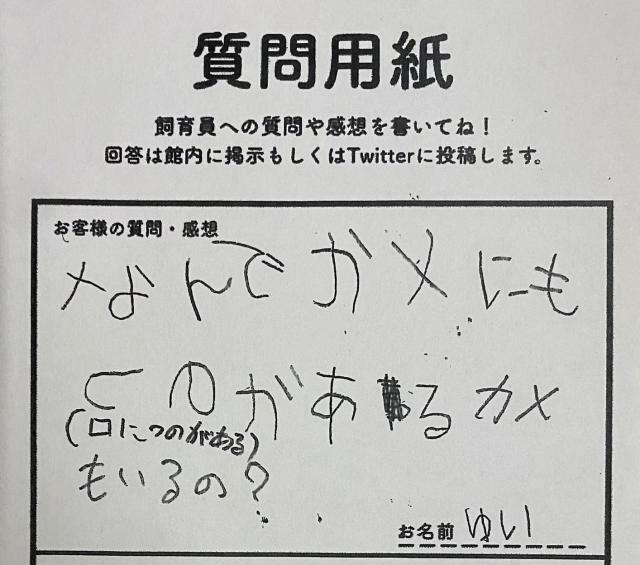 質問用紙
飼育員への質問や感想を書いてね!
回答は館内に掲示もしくはTwitterに投稿します。
お客様の質問・感想
なんでカメにも
つのがあるカメ
(口につのがある)
もいるの?
お名前 ゆい